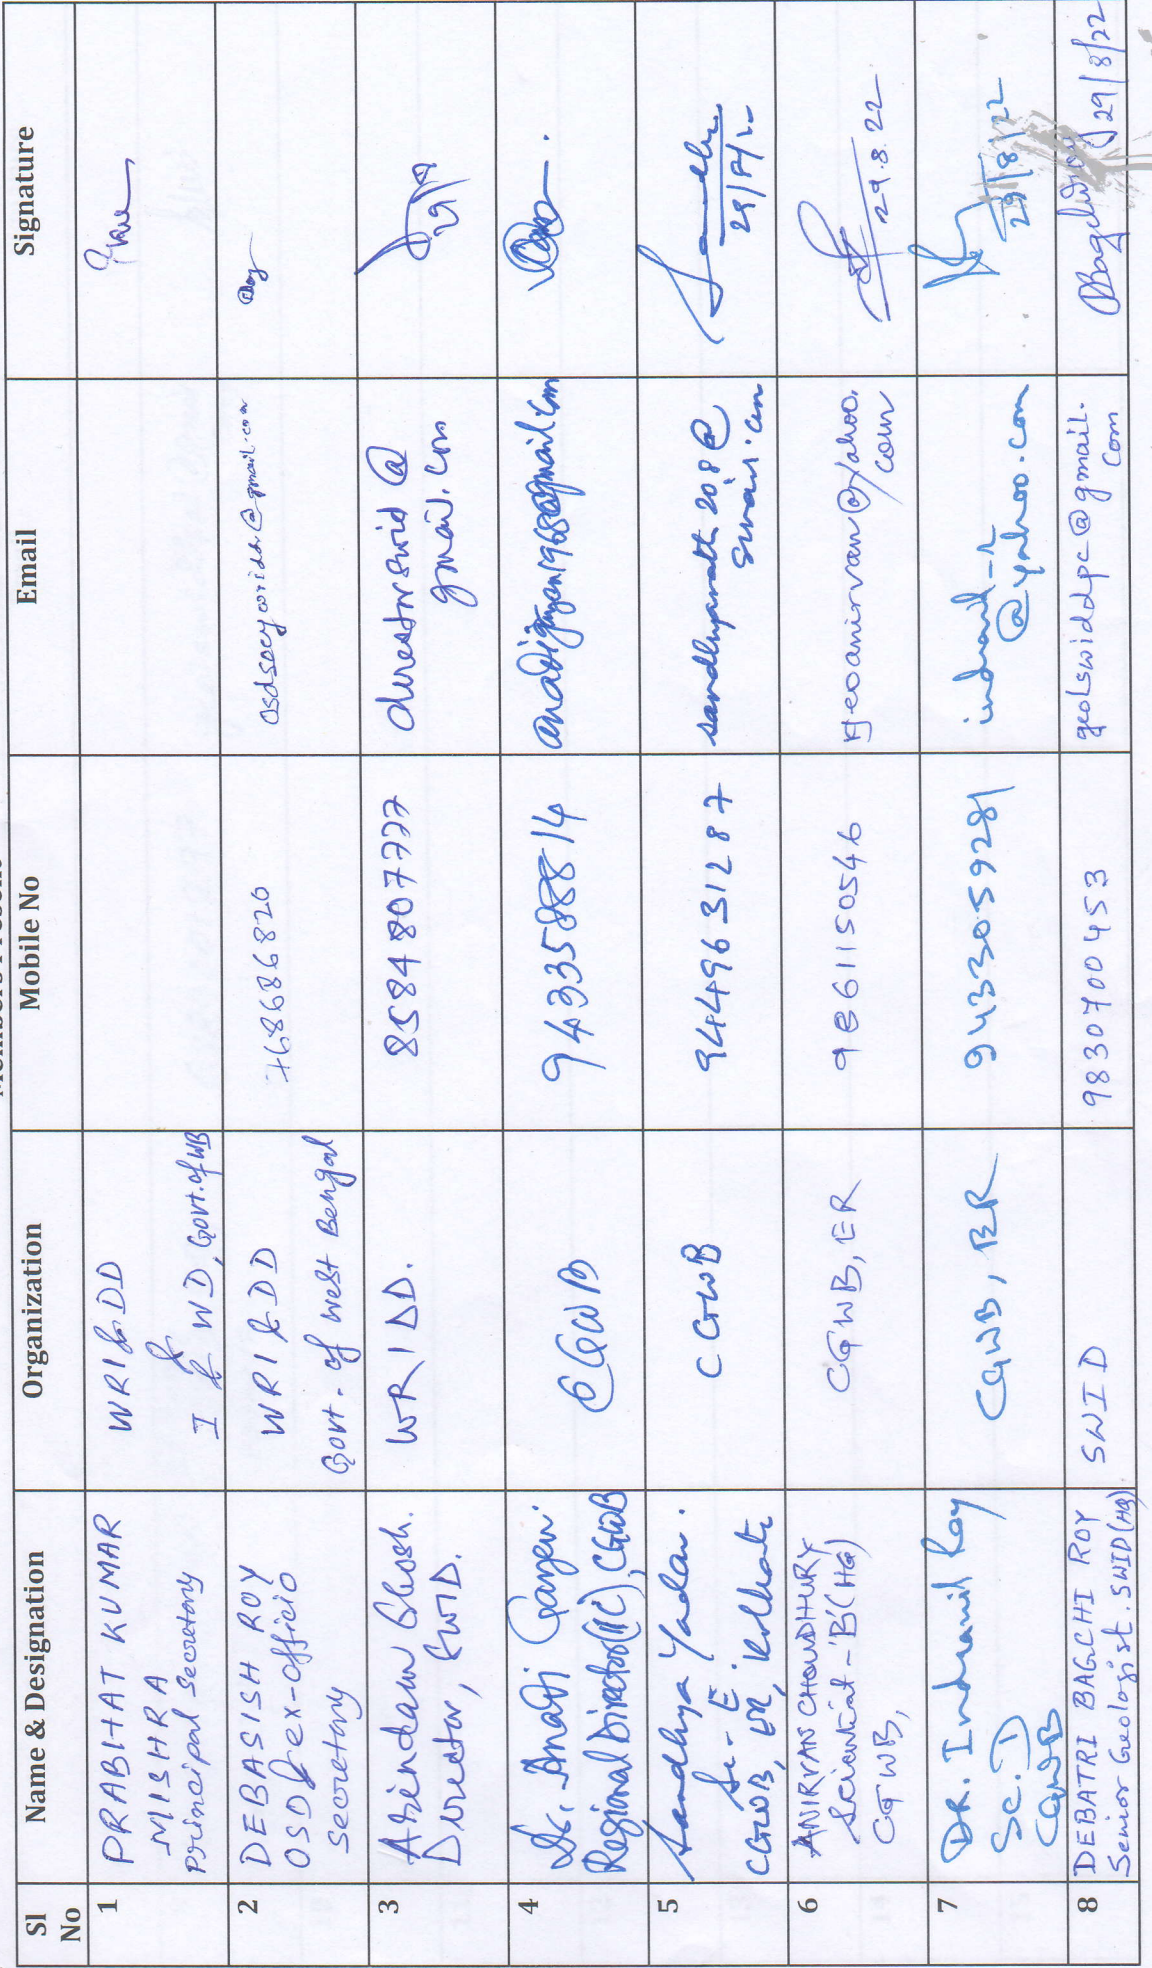 Sl No
Name & Designation
Organization
Mobile No
Email
Signature
1
PRABHAT KUMAR
MISHRA
Principal Secretary
WRI&DD
I & WD, Govt. of WB
2
DEBASISH ROY
OSD & ex-officio
Secretary
WRI&DD
Govt. of West Bengal
768686820
3
Arindam Ghosh.
Director, SWID.
WRIDD.
8584807777
directorswid@
gmail.com
29/8
4
Dr. Anadi Gayen
Regional Director(I/C), CGWB
CGWB
9433588814
anadigayen1968@gmail.com
5
Sandhya Yadav.
Sc-E.
CGWB, ER, Kolkata
CGWB
9449631287
29/8/22
6
ANIRVAN CHOUDHURY
Scientist-'B'(HG)
CGWB,
CGWB, ER
9861150546
geoanirvan@yahoo.
com
29.8.22
7
DR. Indranil Roy
Sc. D
CGWB
CGWB, ER
9433059281
indranil_r
@yahoo.com
29/8/22
8
DEBATRI BAGCHI ROY
Senior Geologist. SWID(HQ).
SWID
9830700453
geolswiddpc@gmail.
com
29/8/22